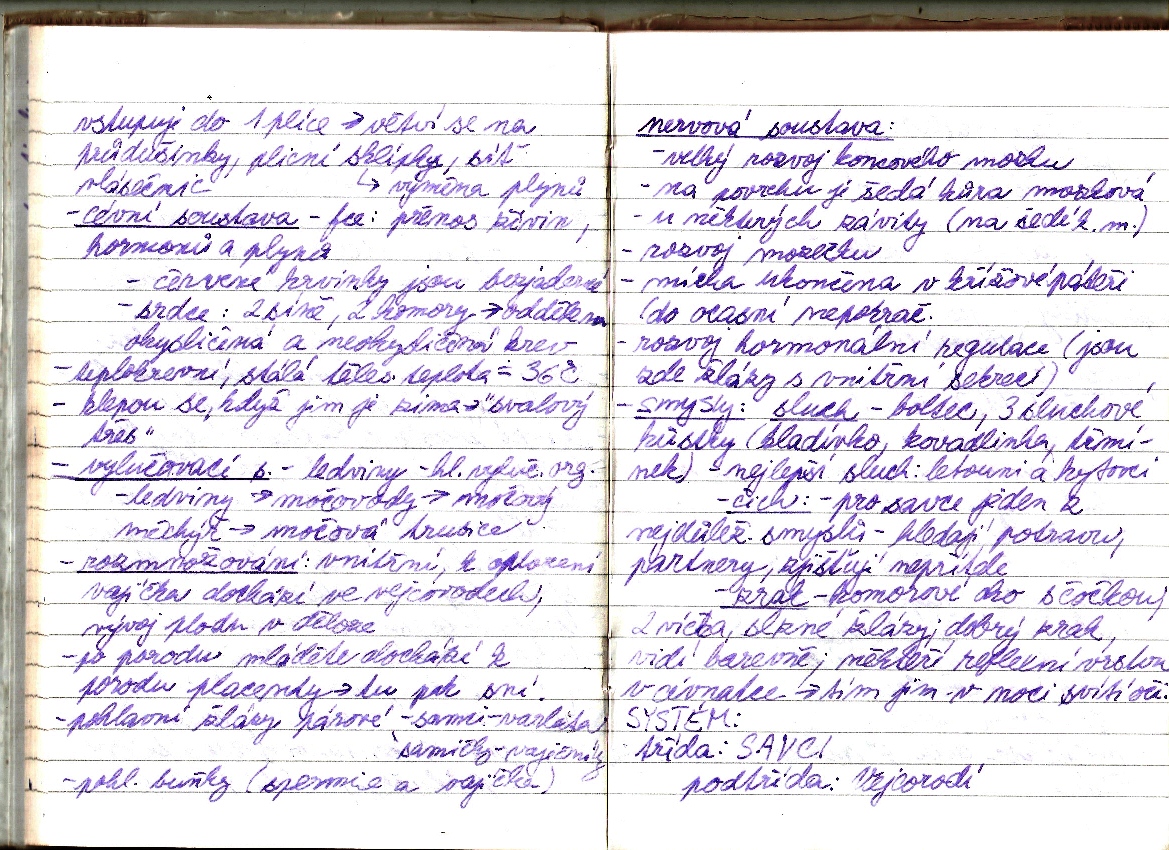 vstupují do 1 plíce → větví se na
průdušinky, plicní sklípky, síť
vlásečnic ↳ výměna plynů
- cévní soustava - fce: přenos živin,
hormonů a plynů
- červené krvinky jsou bezjaderné
- srdce: 2 síně, 2 komory → oddělena
okysličená a neokysličená krev
- teplokrevní, stálá těles. teplota = 36°C
- klepou se, když jim je zima → "svalový
třes"
- vylučovací s. - ledviny - hl. vyluč. org.
- ledviny → močovody → močový
měchýř → močová trubice
- rozmnožování: vnitřní, k oplození
vajíčka dochází ve vejcovodech,
vývoj plodu v děloze
- po porodu mláděte dochází k
porodu placenty → tu pak sní.
- pohlavní žlázy párové - samci - varlata
samičky - vaječníky
- pohl. buňky (spermie a vajíčka)
nervová soustava:
- velký rozvoj koncového mozku
- na povrchu je šedá kůra mozková
- u některých závity (na šedé k. m.)
- rozvoj mozečku
- mícha ukončena v křížové páteři
(do ocasní nepokrač.
- rozvoj hormonální regulace (jsou
zde žlázy s vnitřní sekrecí)
- smysly: sluch - boltec, 3 sluchové
kůstky (kladívko, kovadlinka, třmí-
nek) - nejlepší sluch: letouni a kytovci
- čich: - pro savce jeden z
nejdůlež. smyslů - hledají potravu,
partnery, zjišťují nepřítele
- zrak - komorové oko s čočkou,
2 víčka, slzné žlázy, dobrý zrak,
vidí barevně, někteří reflexní vrstva
v cévnatce → tím jim v noci svítí oči.
SYSTÉM:
třída: SAVCI
podtřída: Vejcorodí